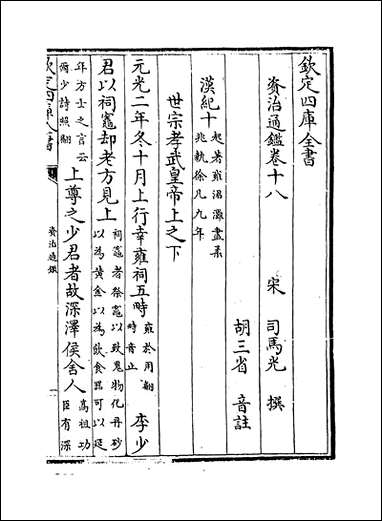 欽定四庫全書
資治通鑑卷十八
宋 司馬光 撰
胡三省 音註
漢紀十 起著雍涒灘盡柔
兆執徐凡九年
世宗孝武皇帝上之下
元光二年冬十月上行幸雍祠五畤 雍於用翻
畤音止 李少
君以祠竈却老方見上 祠竈者祭竈以致鬼物化丹砂
以為黃金以為飲食器可以延
年方士之言云
爾少詩照翻 上尊之少君者故深澤侯舍人 高祖功
臣有深
欽定四庫全書
資治通鑑
一